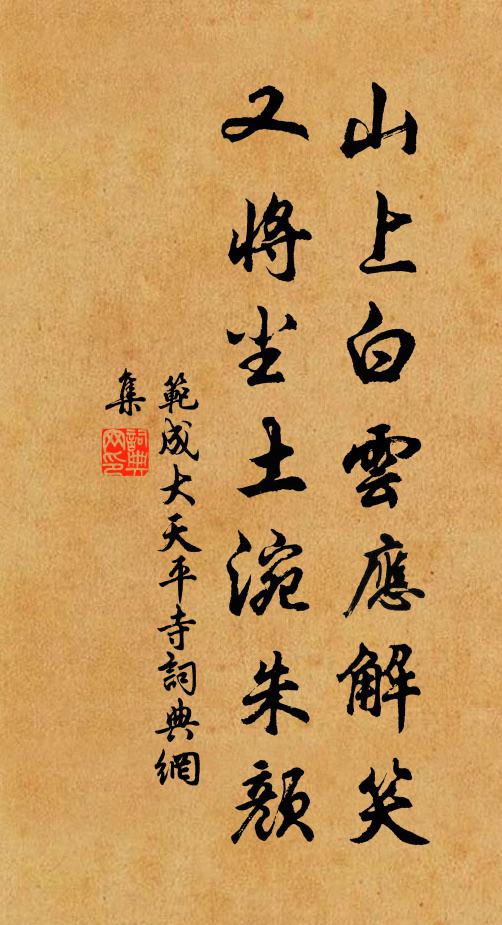 山上白雲應解笑
又將尘土涴朱顏
範成大天平寺詞典網
集
詞典
网印